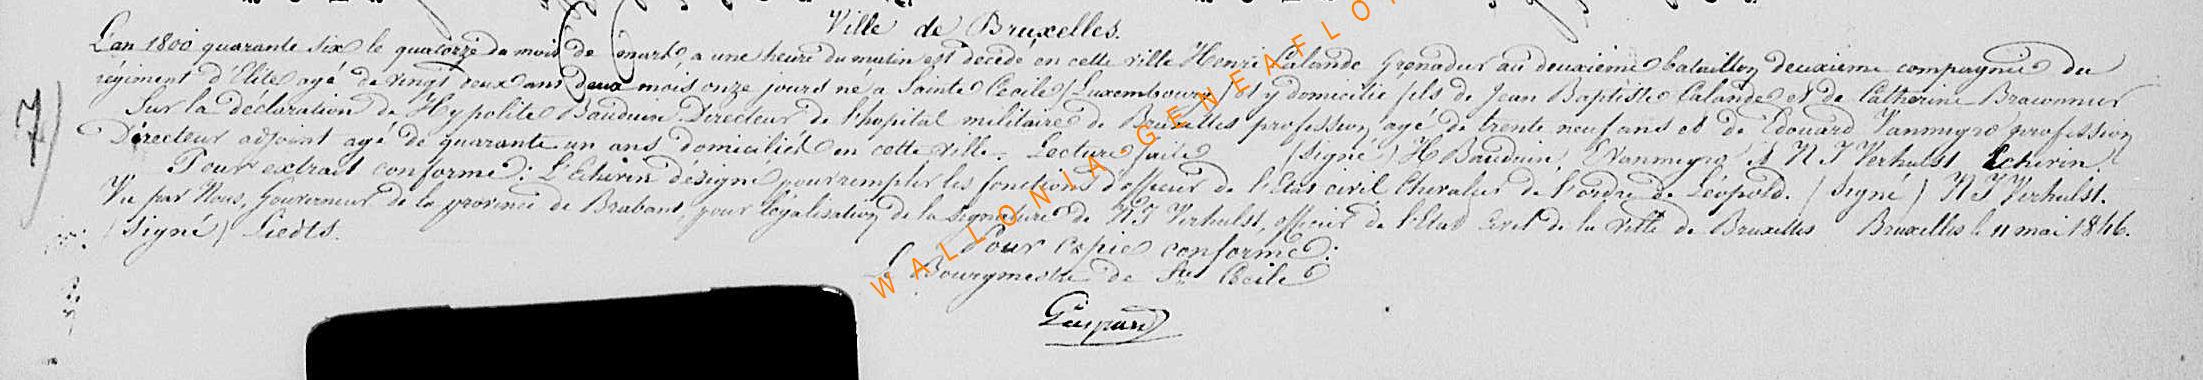 Ville de Bruxelles.
L'an 1800 quarante six le quatorze du mois de mars, a une heure du matin est décédé en cette ville Henri Lalande Grenadier au deuxième bataillon deuxième compagnie du
régiment d'Elite agé de vingt deux ans deux mois onze jours né a Sainte Cécile (Luxembourg) et y domicilié fils de Jean Baptiste Lalande et de Catherine Braconnier
Sur la déclaration de Hypolite Bauduin Directeur de l'hopital militaire de Bruxelles profession agé de trente neuf ans et de Edouard Vanmigro profession
Directeur adjoint agé de quarante un ans domiciliés en cette ville. Lecture faite (signé) H Bauduin, E Vanmigro & N J Verhulst Echevin.
Pour extrait conforme: L'Echevin désigné pour remplir les fonctions d'officier de l'Etat civil Chevalier de l'ordre de Léopold. (signé) N J Verhulst.
Vu par Nous, Gouverneur de la province de Brabant, pour légalisation de la signature de N J Verhulst, officier de l'Etat Civil de la Ville de Bruxelles Bruxelles le 11 mai 1846.
(signé) Liedts.
Pour copie conforme:
Le Bourgmestre de Ste Cécile
Gaspard
7)
WALLONIA-GENEAFLO